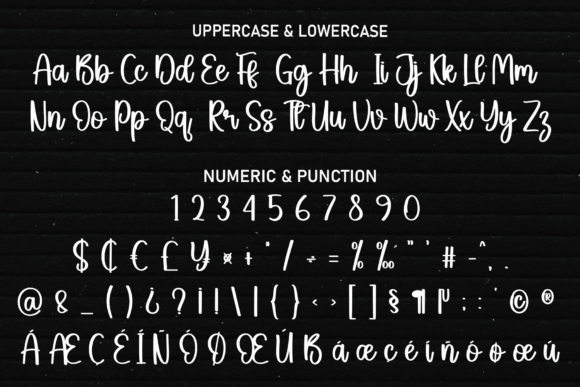 UPPERCASE & LOWERCASE
Aa Bb Cc Dd Ee Ff Gg Hh Ii Jj Kk Ll Mm
Nn Oo Pp Qq Rr Ss Tt Uu Vv Ww Xx Yy Zz
NUMERIC & PUNCTION
1 2 3 4 5 6 7 8 9 0
$ ₵ € £ ¥ ¤ + " / ÷ = % ‰ " ' # - ^ , .
@ & _ ( ) ¿ ? ¡ ! \ | { } ‹ › [ ] § ¶ µ ; : ' © ®
Á Æ Ç É Í Ñ Ó Ø Œ Ú ß á æ ç é í ñ ó ø œ ú